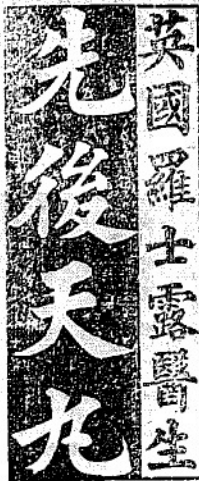 英國羅士露醫生
先後天丸